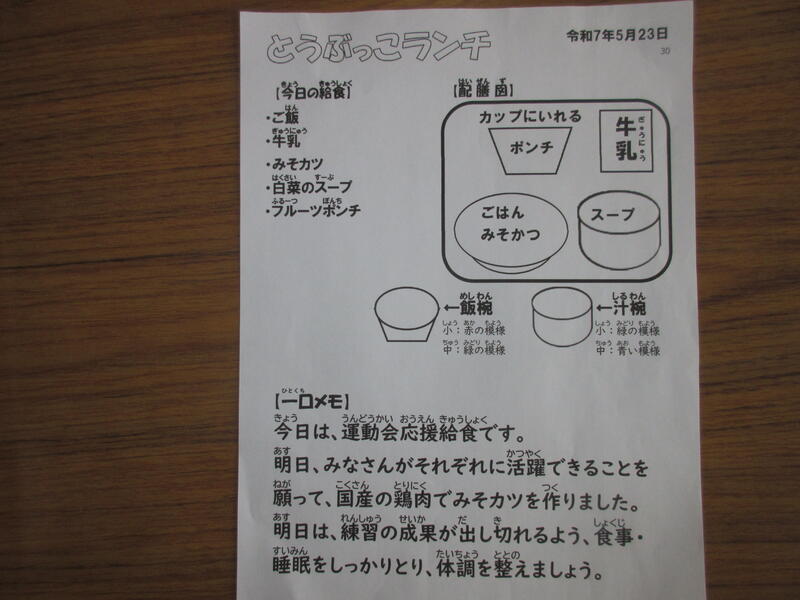 とうぶっこランチ
令和7年5月23日
30
【今日の給食】
・ご飯
・牛乳
・みそカツ
・白菜のスープ
・フルーツポンチ
【配膳図】
カップにいれる
ポンチ
牛乳
ごはん
みそかつ
スープ
←飯椀
小：赤の模様
中：緑の模様
←汁椀
小：緑の模様
中：青い模様
【一口メモ】
今日は、運動会応援給食です。
明日、みなさんがそれぞれに活躍できることを
願って、国産の鶏肉でみそカツを作りました。
明日は、練習の成果が出し切れるよう、食事・
睡眠をしっかりとり、体調を整えましょう。